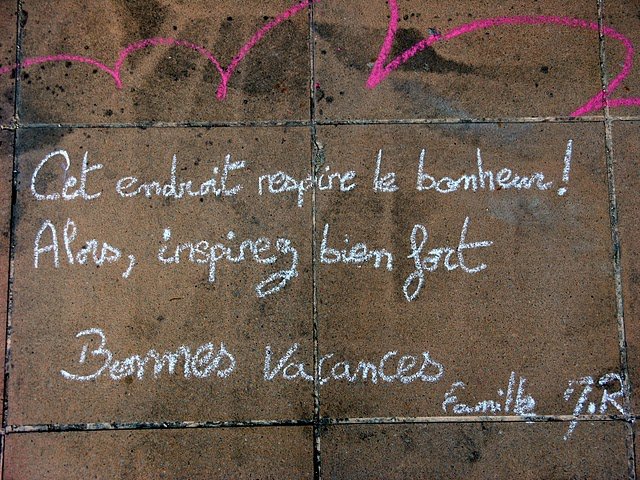 Cet endroit respire le bonheur!
Alors, inspirez bien fort
Bonnes Vacances
Famille J.R